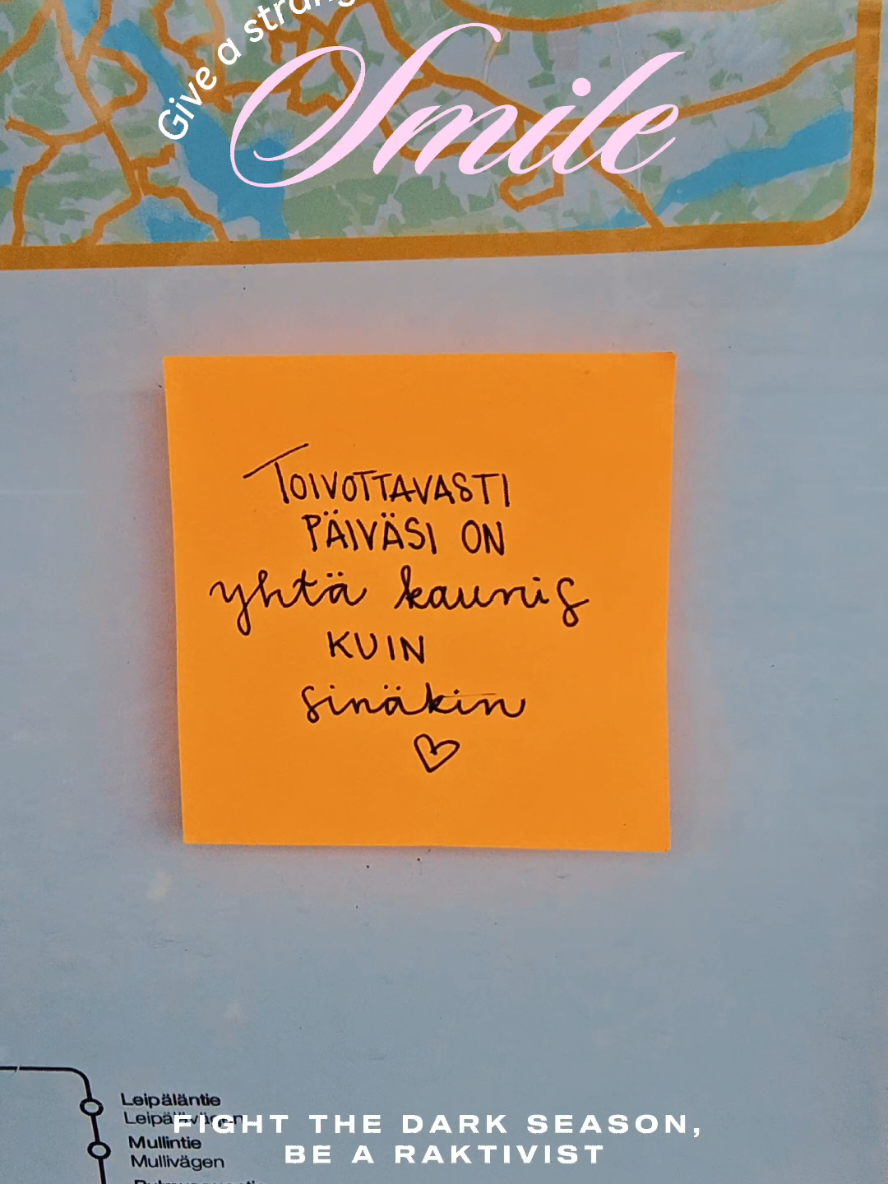 Give a
Smile
TOIVOTTAVASTI
PÄIVÄSI ON
yhtä kaunis
KUIN
sinäkin
Leipäläntie
FIGHT THE DARK SEASON,
Mullintie
BE A RAKTIVIST
Mullivägen